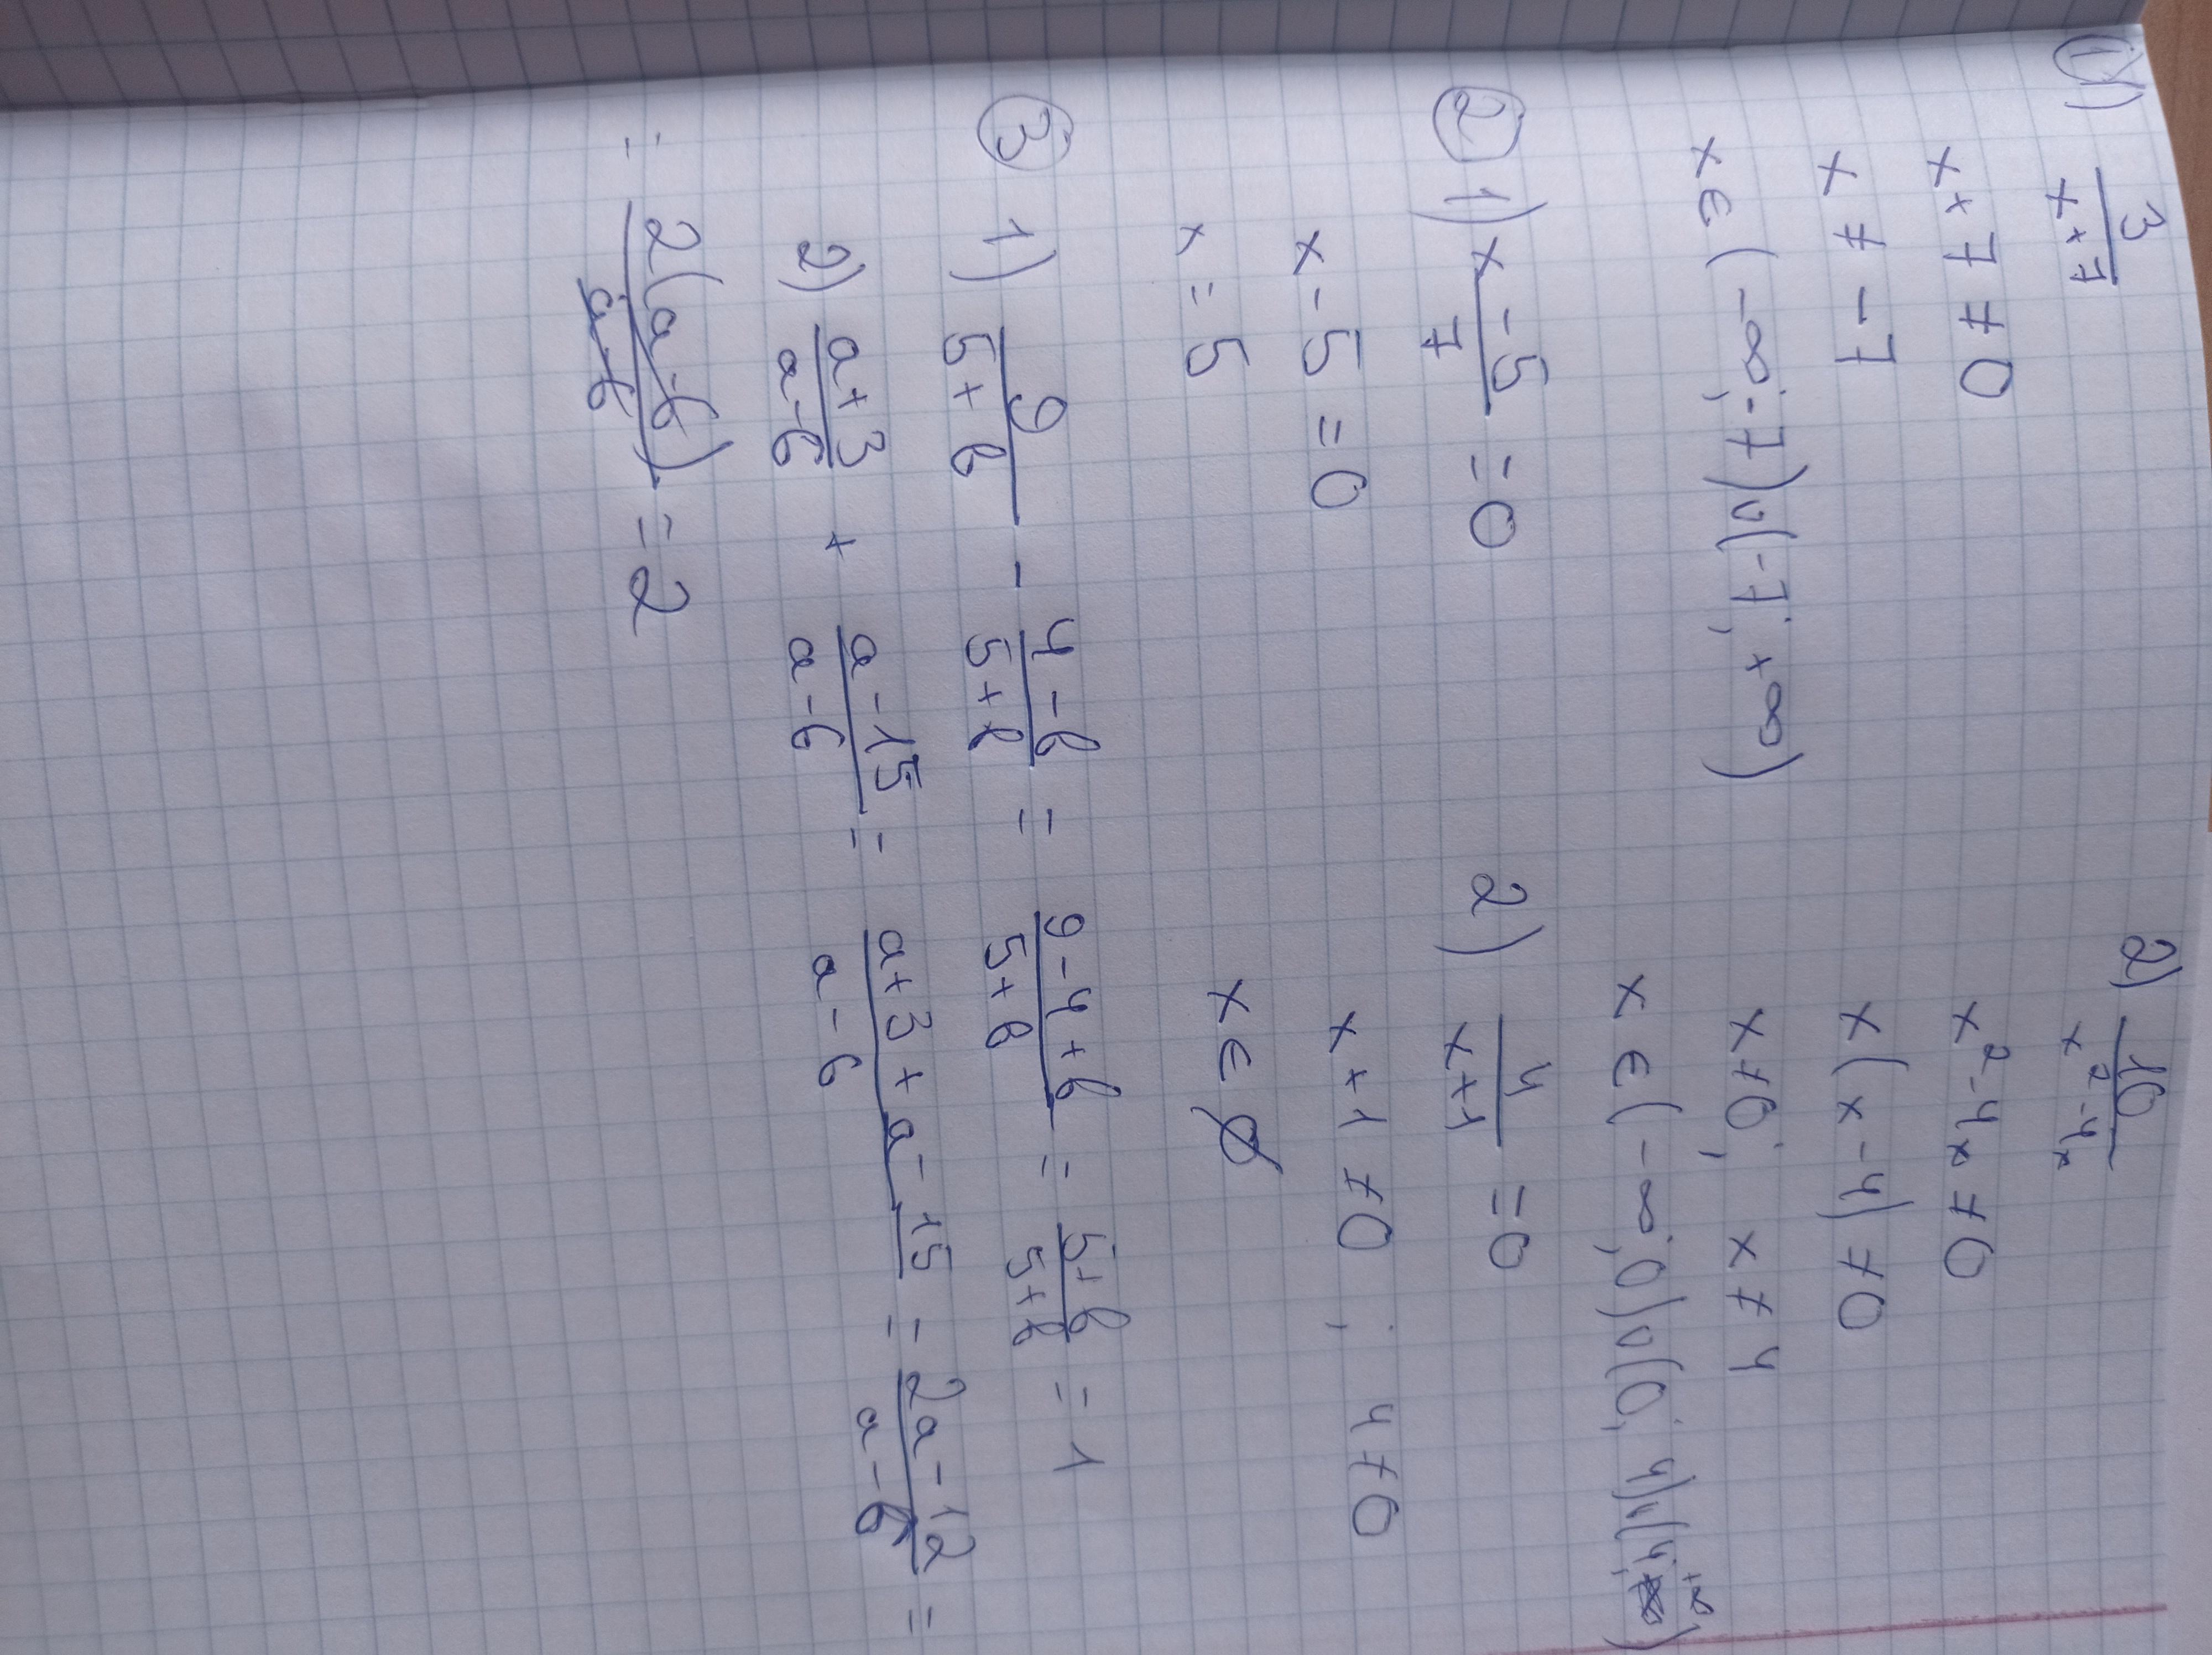 ① 1) 3/(x+7)
x+7≠0
x≠-7
x∈(-∞;-7)∪(-7;+∞)
2) 10/(x²-4x)
x²-4x≠0
x(x-4)≠0
x≠0; x≠4
x∈(-∞;0)∪(0;4)∪(4;+∞)
② 1) (x-5)/7=0
x-5=0
x=5
2) 4/(x+1)=0
x+1≠0; 4≠0
x∈∅
③ 1) 9/(5+b) - (4-b)/(5+b) = (9-4+b)/(5+b) = (5+b)/(5+b) = 1
2) (a+3)/(a-6) + (a-15)/(a-6) = (a+3+a-15)/(a-6) = (2a-12)/(a-6) =
= 2(a-6)/(a-6) = 2